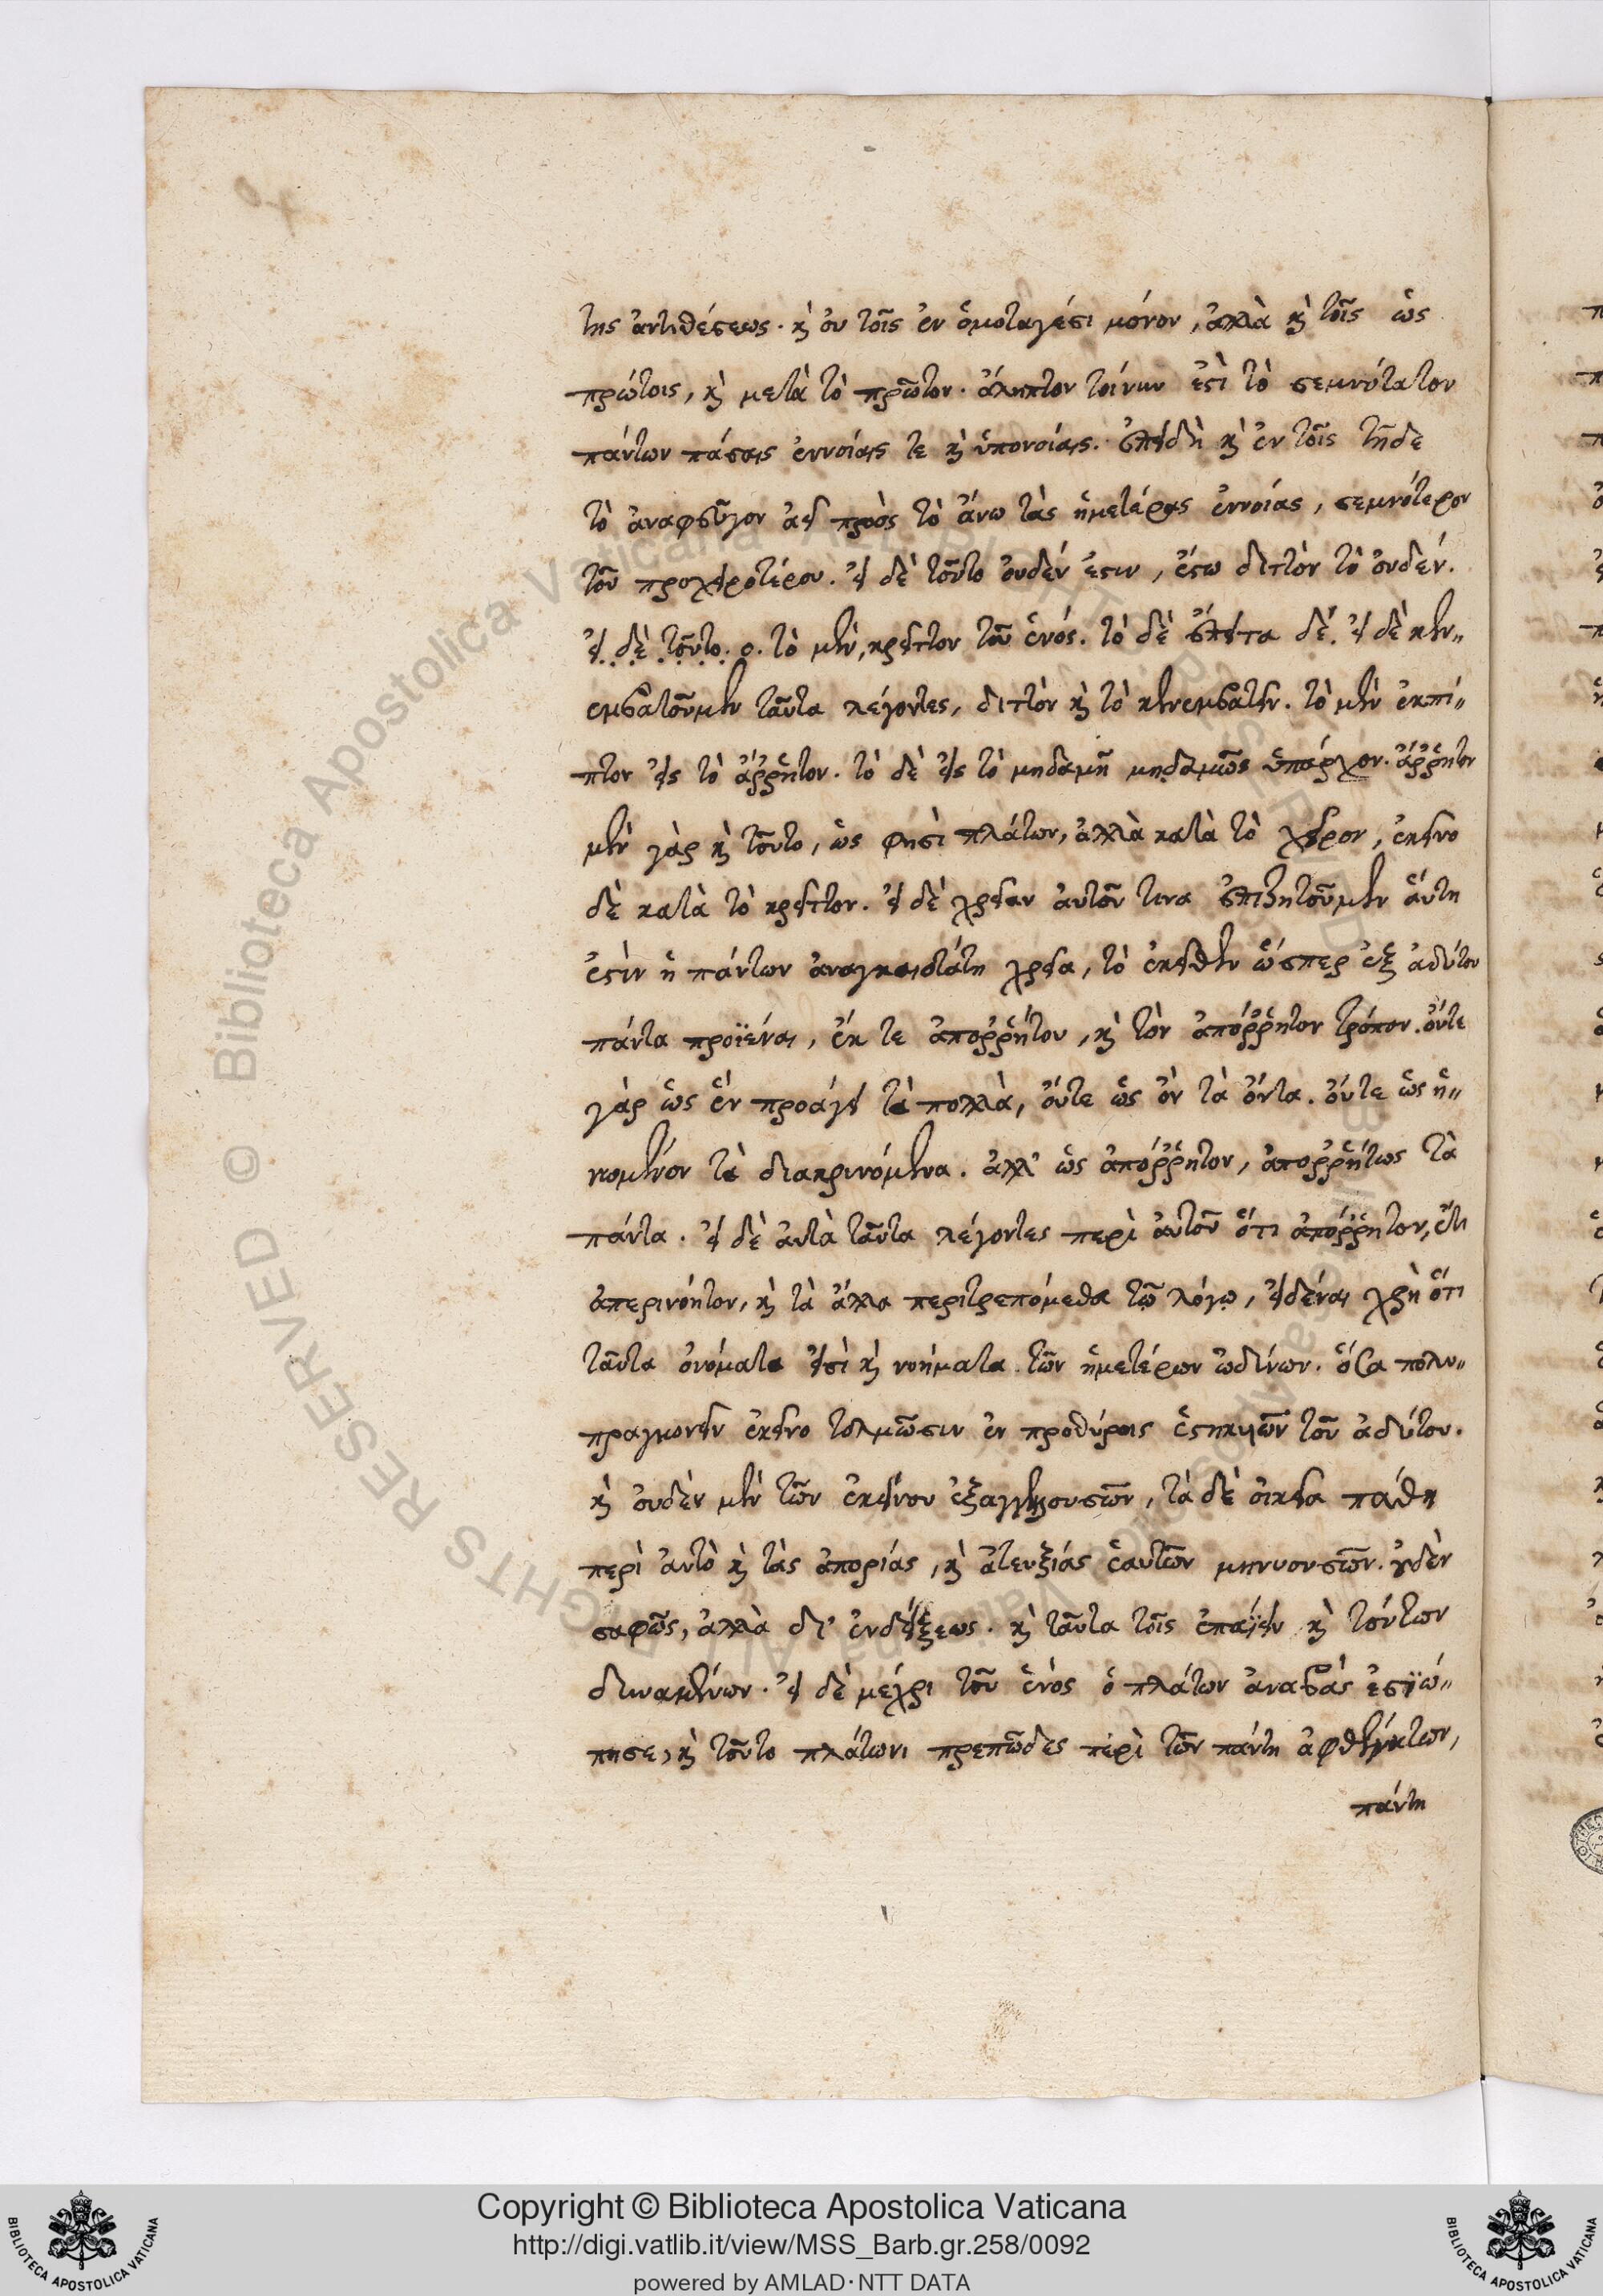 της ἀντιθέσεως. κὴ ὀυ τοῖς ἐν ὁμοταγέσι μόνον, ἀλλὰ κὴ τοῖς ὡς
πρώτοις, κὴ μετὰ τὸ πρῶτον. ἄληπτον τοίνυν ἐστὶ τὸ σεμνότατον
πάντων πάσαις ἐννοίαις τε κὴ ὑπονοίαις. ἐπειδὴ κὴ ἐν τοῖς τῆδε
τὸ ἀναφεῦγον ἀεὶ πρὸς τὸ ἄνω τὰς ἡμετέρας ἐννοίας, σεμνότερον
τοῦ προχειροτέρου. εἰ δὲ τοῦτο ὀυδέν ἐστιν, ἔστω διττὸν τὸ ὀυδέν.
εἰ δὲ τοῦτο. ο. τὸ μὲν, κρεῖττον τοῦ ἑνός. τὸ δὲ ἐπέκεινα δέ. εἰ δὲ κεν〃
εμβατοῦμεν ταῦτα λέγοντες, διττὸν κὴ τὸ κενεμβατεῖν. τὸ μὲν ἐκπί〃
πτον εἰς τὸ ἄῤῥητον. τὸ δὲ εἰς τὸ μηδαμῆ μηδαμῶς ὑπάρχον. ἄῤῥητον
μὲν γὰρ κὴ τοῦτο, ὡς φησὶ πλάτων, ἀλλὰ κατὰ τὸ χεῖρον, ἐκεῖνο
δὲ κατὰ τὸ κρεῖττον. εἰ δὲ χρείαν ἀυτοῦ τινα ἐπιζητοῦμεν ἅυτη
ἐστὶν ἡ πάντων ἀναγκαιοτάτη χρεία, τὸ ἐκεῖθεν ὥσπερ ἐξ ἀδύτου
πάντα προϊέναι, ἔκ τε ἀποῤῥήτου, κὴ τὸν ἀπόῤῥητον τρόπον. ὄυτε
γὰρ ὡς ἓν προάγει τὰ πολλὰ, ὄυτε ὡς ὂν τὰ ὄντα. ὄυτε ὡς ἡ〃
νομένον τὰ διακρινόμενα. ἀλλ' ὡς ἀπόῤῥητον, ἀποῤῥήτως τὰ
πάντα. εἰ δὲ ἀυτὰ ταῦτα λέγοντες περὶ ἀυτοῦ ὅτι ἀπόῤῥητον, ὅτι
ἀπερινόητον, κὴ τὰ ἄλλα περιτρεπόμεθα τῷ λόγῳ, εἰδέναι χρὴ ὅτι
ταῦτα ὀνόματα εἰσὶ κὴ νοήματα τῶν ἡμετέρων ὠδίνων. ὅσα πολυ〃
πραγμονεῖν ἐκεῖνο τολμῶσιν ἐν προθύροις ἑστηκυιῶν τοῦ ἀδύτου.
κὴ ὀυδὲν μὲν τῶν ἐκείνου ἐξαγγελλουσῶν, τὰ δὲ οἰκεῖα πάθη
περὶ ἀυτὸ κὴ τὰς ἀπορίας, κὴ ἀτευξίας ἑαυτῶν μηνυουσῶν. ουδὲν
σαφῶς, ἀλλὰ δι' ἐνδείξεως. κὴ ταῦτα τοῖς ἐπαΐειν κὴ τούτων
δυναμένων. εἰ δὲ μέχρι τοῦ ἑνὸς ὁ πλάτων ἀναβὰς ἐσϊώ〃
πησε, κὴ τοῦτο πλάτωνι πρεπῶδες περὶ τῶν πάντη ἀφθέγκτων,
πάντη
Copyright © Biblioteca Apostolica Vaticana
http://digi.vatlib.it/view/MSS_Barb.gr.258/0092
powered by AMLAD·NTT DATA